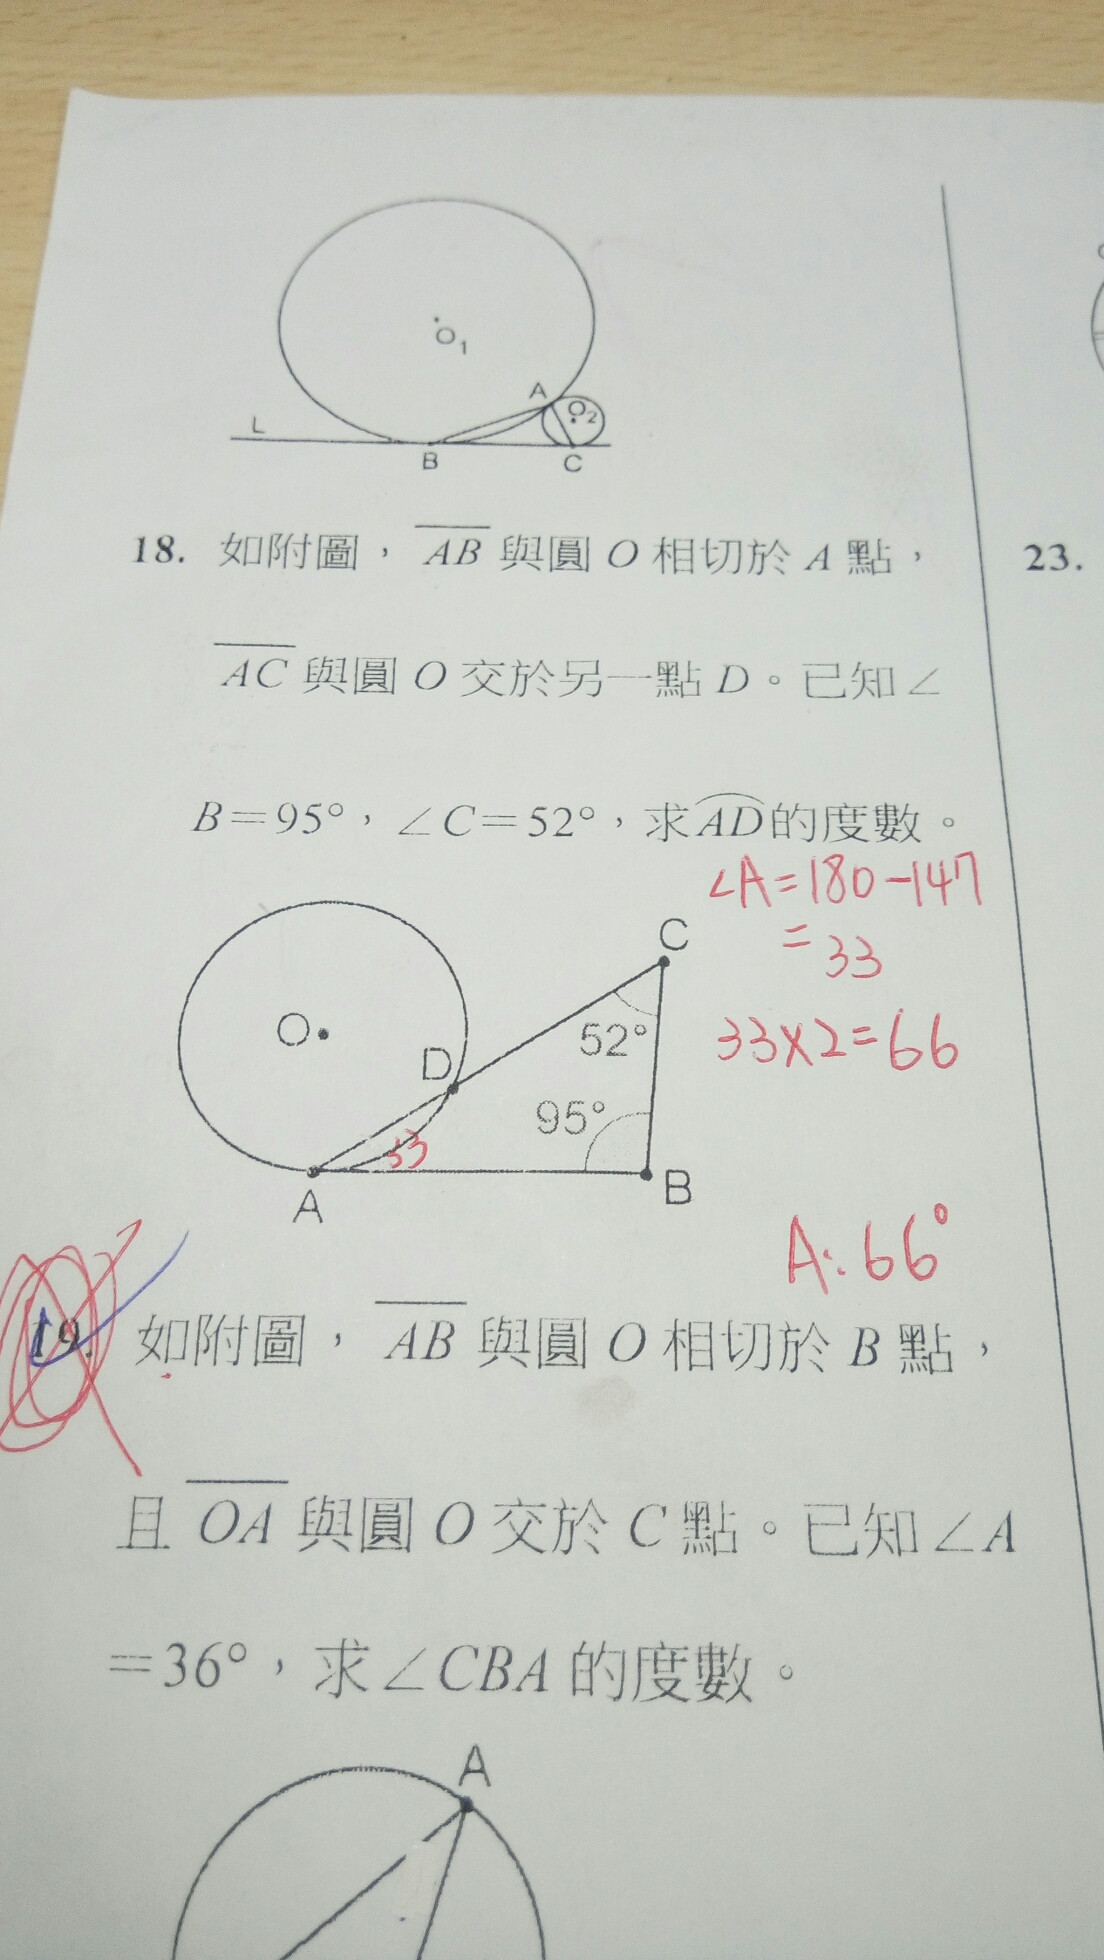 O₁
A
O₂
L
B
C
18. 如附圖，AB 與圓 O 相切於 A 點，
AC 與圓 O 交於另一點 D。已知∠
B＝95°，∠C＝52°，求AD的度數。
∠A=180-147
=33
33×2=66
C
O
52°
D
95°
33
A
B
A:66°
19. 如附圖，AB 與圓 O 相切於 B 點，
且 OA 與圓 O 交於 C 點。已知∠A
＝36°，求∠CBA 的度數。
A
23.